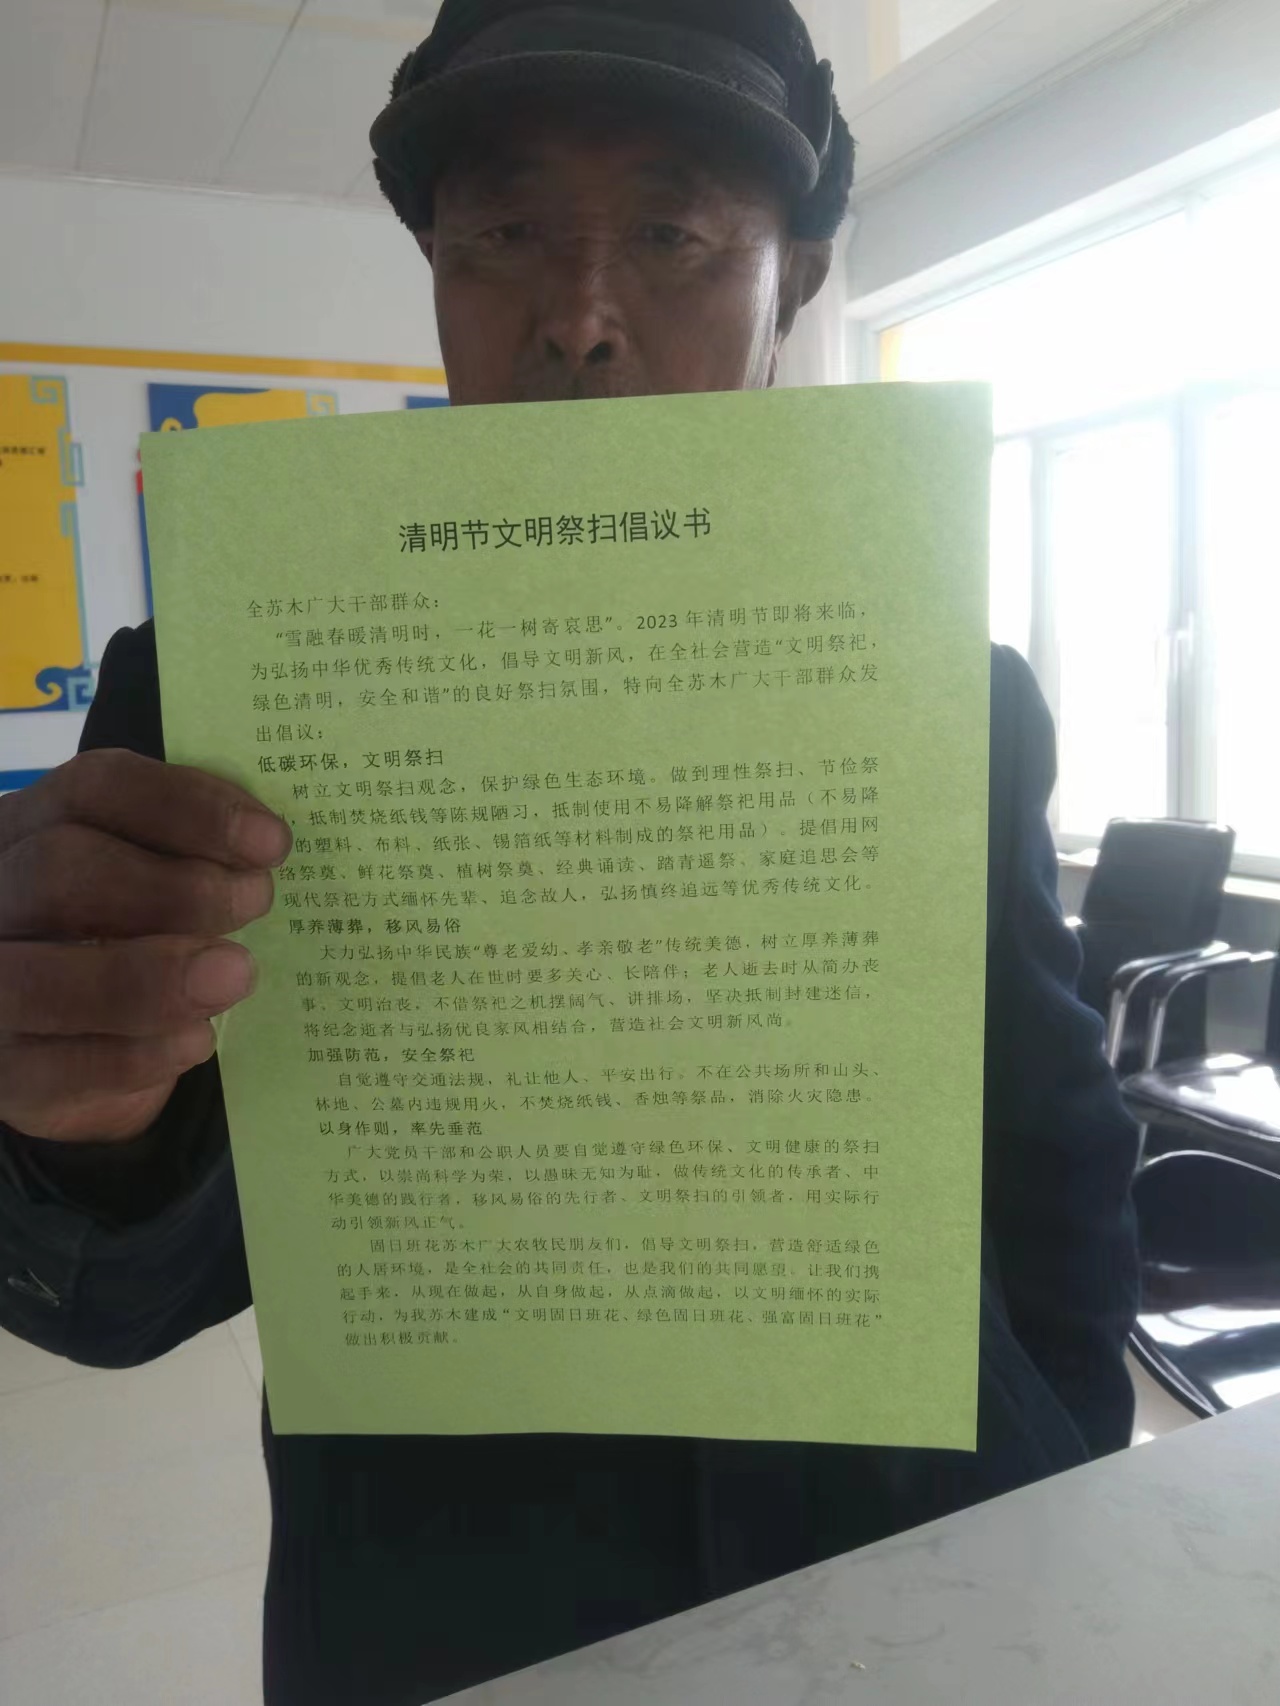 清明节文明祭扫倡议书
全苏木广大干部群众：
“雪融春暖清明时，一花一树寄哀思”。2023 年清明节即将来临，
为弘扬中华优秀传统文化，倡导文明新风，在全社会营造“文明祭祀，
绿色清明，安全和谐”的良好祭扫氛围，特向全苏木广大干部群众发
出倡议：
低碳环保，文明祭扫
树立文明祭扫观念，保护绿色生态环境。做到理性祭扫、节俭祭
，抵制焚烧纸钱等陈规陋习，抵制使用不易降解祭祀用品（不易降
的塑料、布料、纸张、锡箔纸等材料制成的祭祀用品）。提倡用网
络祭奠、鲜花祭奠、植树祭奠、经典诵读、踏青遥祭、家庭追思会等
现代祭祀方式缅怀先辈、追念故人，弘扬慎终追远等优秀传统文化。
厚养薄葬，移风易俗
大力弘扬中华民族“尊老爱幼、孝亲敬老”传统美德，树立厚养薄葬
的新观念，提倡老人在世时要多关心、长陪伴；老人逝去时从简办丧
事、文明治丧，不借祭祀之机摆阔气、讲排场，坚决抵制封建迷信，
将纪念逝者与弘扬优良家风相结合，营造社会文明新风尚。
加强防范，安全祭祀
自觉遵守交通法规，礼让他人、平安出行。不在公共场所和山头、
林地、公墓内违规用火，不焚烧纸钱、香烛等祭品，消除火灾隐患。
以身作则，率先垂范
广大党员干部和公职人员要自觉遵守绿色环保、文明健康的祭扫
方式，以崇尚科学为荣，以愚昧无知为耻，做传统文化的传承者、中
华美德的践行者，移风易俗的先行者、文明祭扫的引领者，用实际行
动引领新风正气。
固日班花苏木广大农牧民朋友们，倡导文明祭扫，营造舒适绿色
的人居环境，是全社会的共同责任，也是我们的共同愿望。让我们携
起手来，从现在做起，从自身做起，从点滴做起，以文明缅怀的实际
行动，为我苏木建成“文明固日班花、绿色固日班花、强富固日班花”
做出积极贡献。